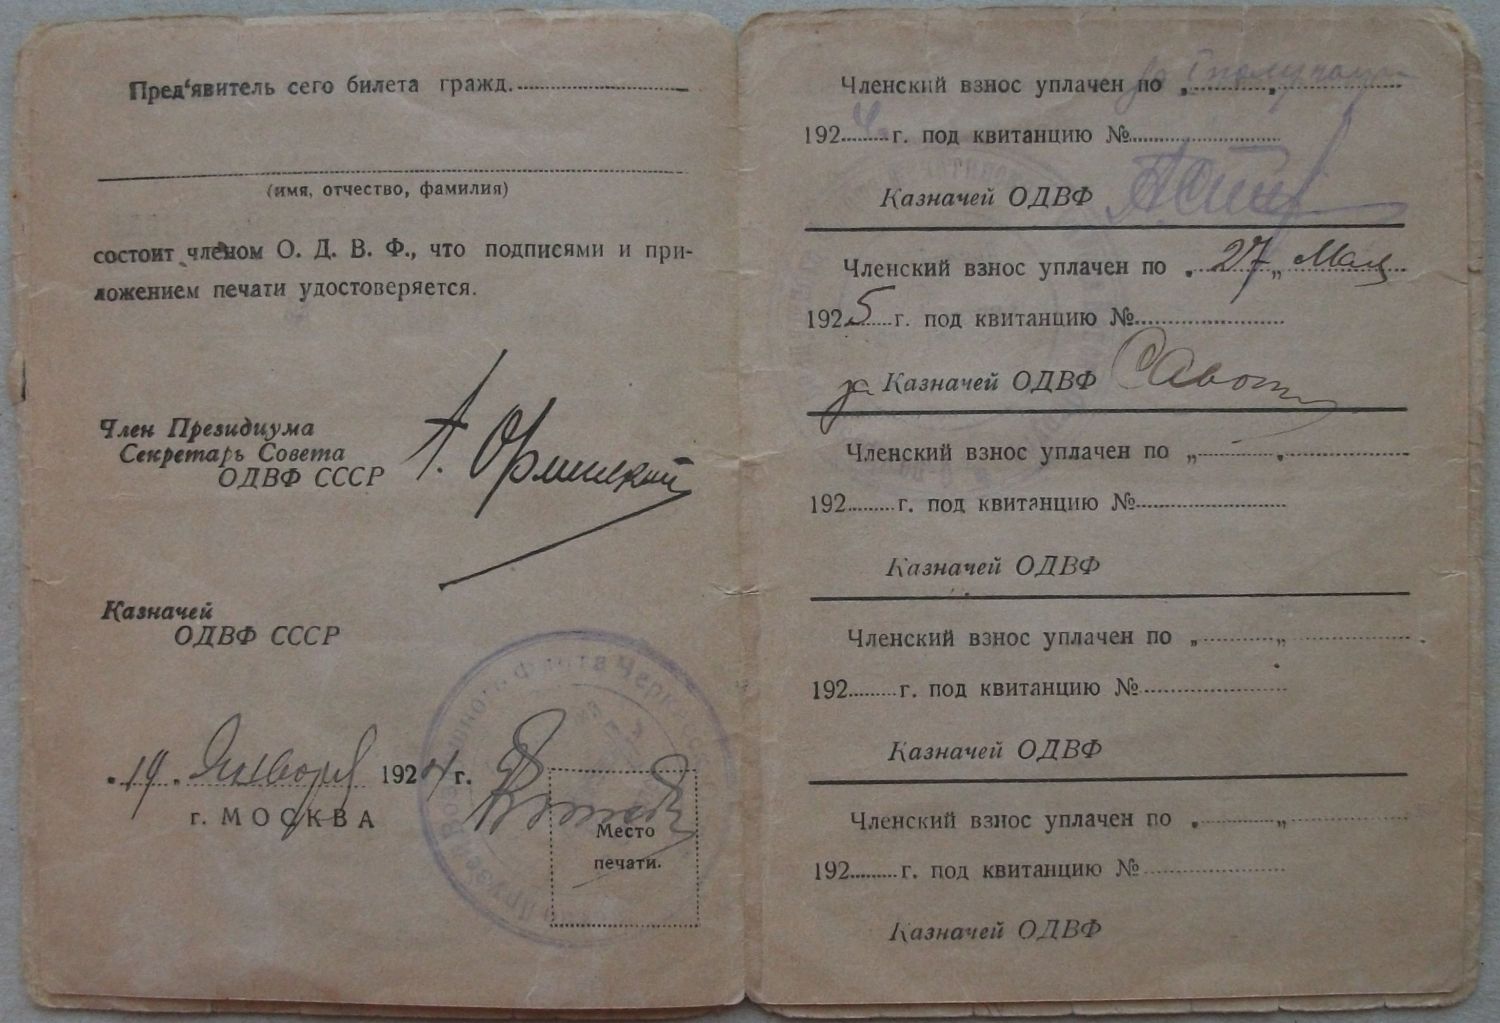 Пред'явитель сего билета гражд.
(имя, отчество, фамилия)
состоит членом О. Д. В. Ф., что подписями и при-
ложением печати удостоверяется.
Член Президиума
Секретарь Совета
ОДВФ СССР
Казначей
ОДВФ СССР
„19„ Января 1924 г.
г. МОСКВА
Место
печати.
Членский взнос уплачен по „ „
1924 г. под квитанцию №
Казначей ОДВФ
Членский взнос уплачен по „27„ Мая
1925 г. под квитанцию №
за Казначей ОДВФ
Членский взнос уплачен по „ „
192 г. под квитанцию №
Казначей ОДВФ
Членский взнос уплачен по „ „
192 г. под квитанцию №
Казначей ОДВФ
Членский взнос уплачен по „ „
192 г. под квитанцию №
Казначей ОДВФ